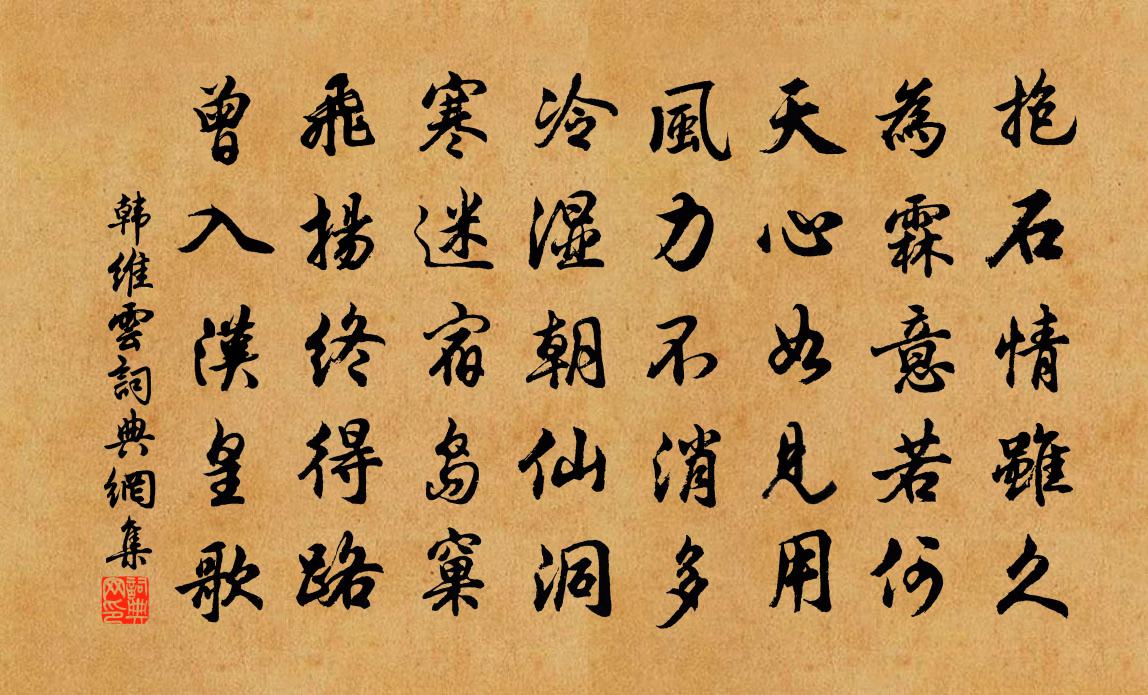 抱石情雖久
為霖意若何
天心如見用
風力不消多
冷湿朝仙洞
寒迷宿島窠
飛揚終得路
曽入漢皇歌
韩維雲詞典網集
詞典
网印